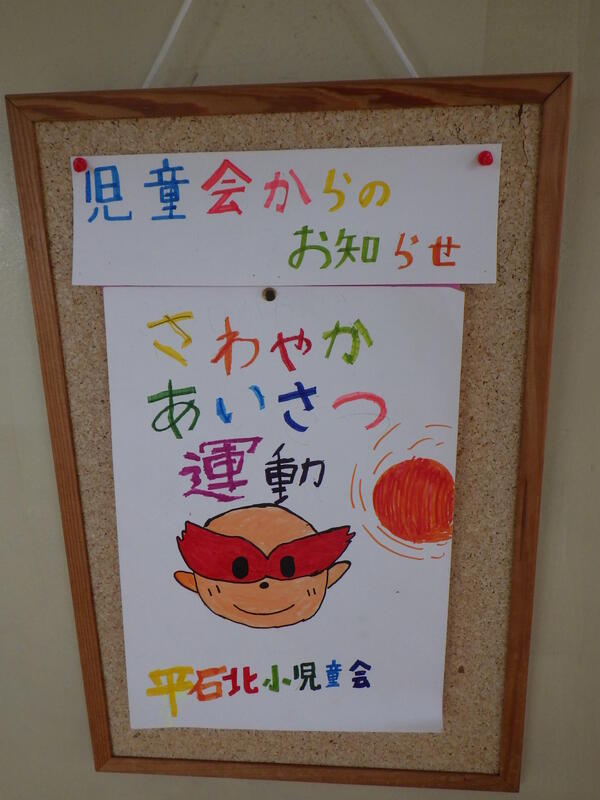 児童会からの
お知らせ
さわやか
あいさつ
運動
平石北小児童会